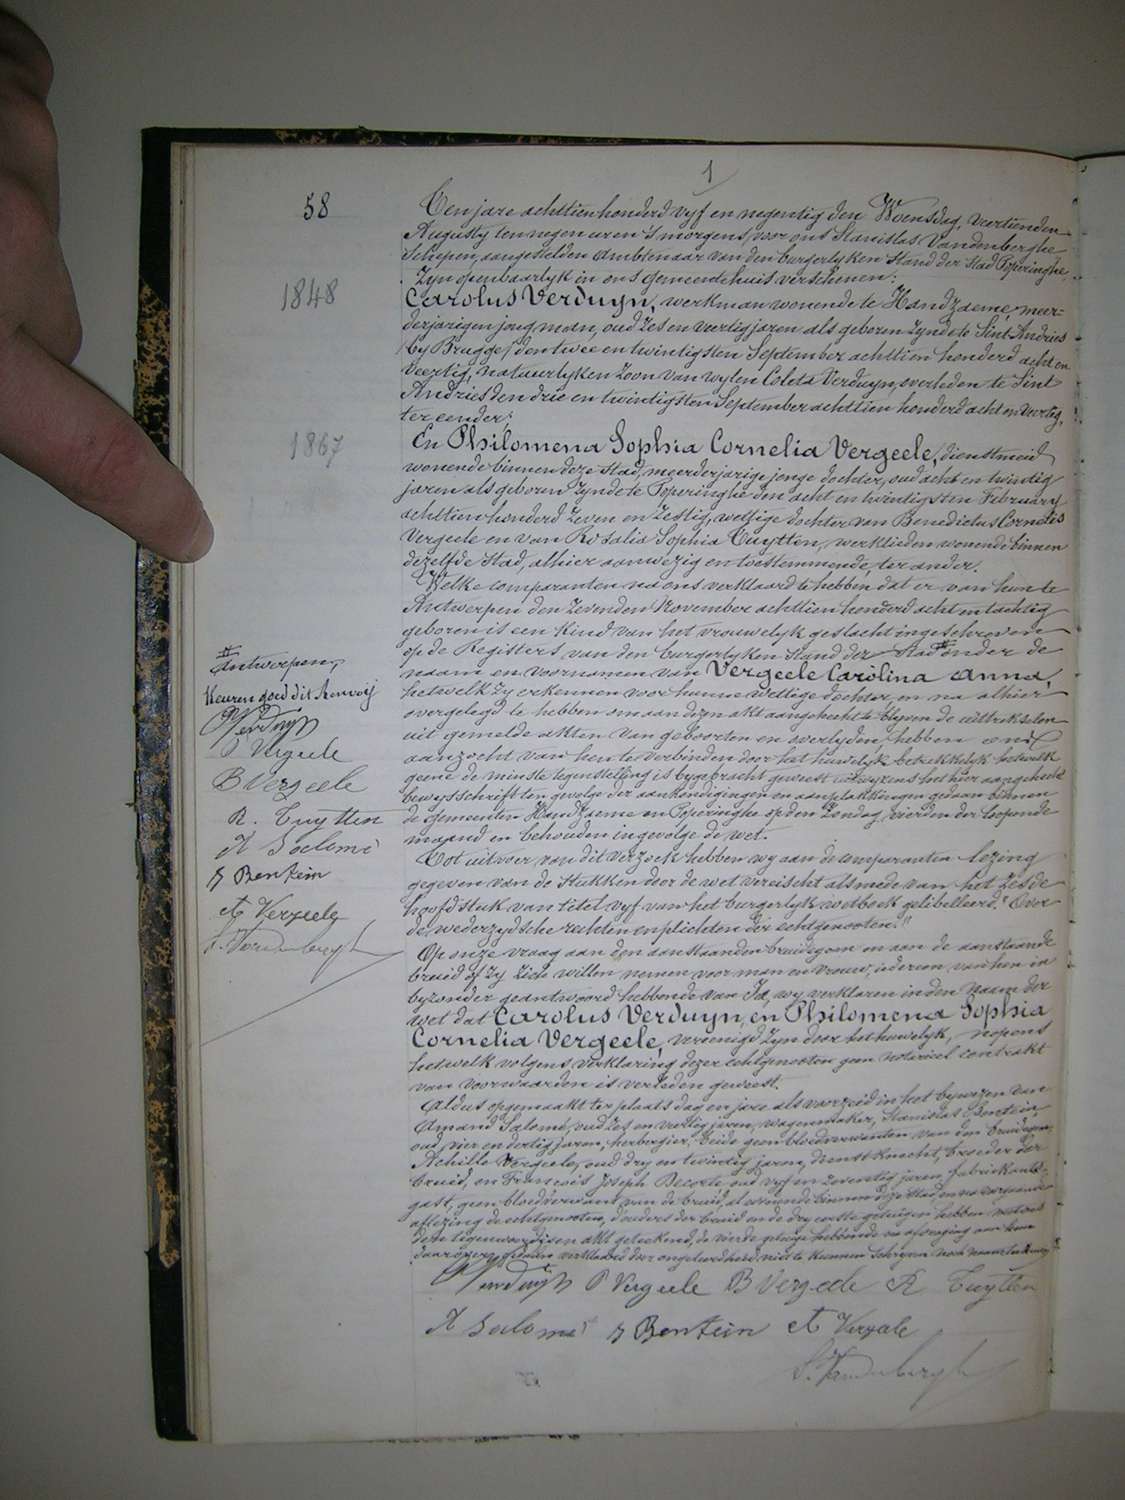 1
58
Ten jare achttien honderd vyf en negentig den Woensdag, veertienden
Augusty ten negen uren 's morgens, voor ons Stanislas Vandenberghe
Schepen, aangestelden Ambtenaar van den burgerlyken Stand der Stad Poperinghe,
Zyn openbaarlyk in ons gemeentehuis verschenen:
1848
Carolus Verduyn, werkman wonende te Handzaeme, meer=
derjarigen jongman, oud zes en veertig jaren als geboren zynde te Sint Andries
by Brugge, den twee en twintigsten September achttien honderd acht en
veertig, natuurlyken zoon van wylen Coleta Verduyn, overleden te Sint
Andries den drie en twintigsten September achttien honderd acht en veertig,
ter eender;
1867
En Philomena Sophia Cornelia Vergeele, dienstmeid
wonende binnen deze stad, meerderjarige jonge dochter, oud acht en twintig
jaren als geboren zynde te Poperinghe den acht en twintigsten February
achttien honderd zeven en zestig, wettige dochter van Benedictus Cornelis
Vergeele en van Rosalia Sophia Tuytten, werklieden wonende binnen
dezelfde Stad, alhier aanwezig en toestemmende, ter ander.
Welke comparanten na ons verklaard te hebben dat er van hun te
Antwerpen den zevenden November achttien honderd acht en tachtig
geboren is een kind van het vrouwelyk geslacht ingeschreven
op de Registers van den burgerlyken Stand der Stad # onder de
naam en voornamen van Vergeele Carolina Anna,
hetwelk zy erkennen voor hunne wettige dochter, en na alhier
overgelegd te hebben om aan dezen akt aangehecht te blyven de uittreksels
uit gemelde akten van geboorten en overlyden, hebben ons
aanzocht van hen te verbinden door het huwelyk betrekkelyk hetwelk
geene de minste tegenstelling is bygebracht geweest uitwyzens het hier aangehecht
bewysschrift ten gevolge der aankondigingen en aanplakkingen gedaan binnen
de gemeenten Handzaeme en Poperinghe op den Zondag, vierden der loopende
maand en behouden ingevolge de wet.
# Antwerpen,
Keuren goed dit Renvoij
C Verduyn
P Vergeele
B Vergeele
R. Tuytten
A Salomé
S Bentein
A Vergeele
S. Vandenbergh
Tot uitvoer van dit verzoek hebben wy aan de comparanten lezing
gegeven van de stukken door de wet vereischt alsmede van het zesde
hoofdstuk van titel vyf van het burgerlyk wetboek gelibelleerd: "Over
de wederzydsche rechten en plichten der echtgenooten."
Op onze vraag aan den aanstaanden bruidegom en aan de aanstaande
bruid of zy zich willen nemen voor man en vrouw, iedereen van hen in
byzonder geantwoord hebbende van Ja, wy verklaren in den naam der
wet dat Carolus Verduyn, en Philomena Sophia
Cornelia Vergeele, vereenigd zyn door het huwelyk, nopens
hetwelk volgens verklaring dezer echtgenooten geen notarieel contrakt
van voorwaarden is verleden geweest.
Aldus opgemaakt ter plaats dag en jare als voorzeid in het bywezen van
Amand Salomé, oud zes en veertig jaren, wagenmaker, Stanislas Bentein
oud vier en dertig jaren, herbergier, beide geen bloedverwanten van den bruidegom,
Achille Vergeele, oud dry en twintig jaren, dienstknecht, broeder der
bruid, en François Joseph Decorte oud vyf en zeventig jaren, fabriekant
gast, geen bloedverwant van de bruid, al wonende binnen deze Stad, en na
aflezing de echtgenooten, d'ouders der bruid en de dry eerste getuigen hebben met ons
dezen tegenwoordigen akt geteekend, de vierde getuige hebbende na afvraging aan hem
daarover gedaan verklaard door ongeleerdheid niet te kunnen schryven noch naamteekenen.
C Verduyn P Vergeele B Vergeele R Tuytten
A Salomé S Bentein A Vergeele
S. Vandenbergh